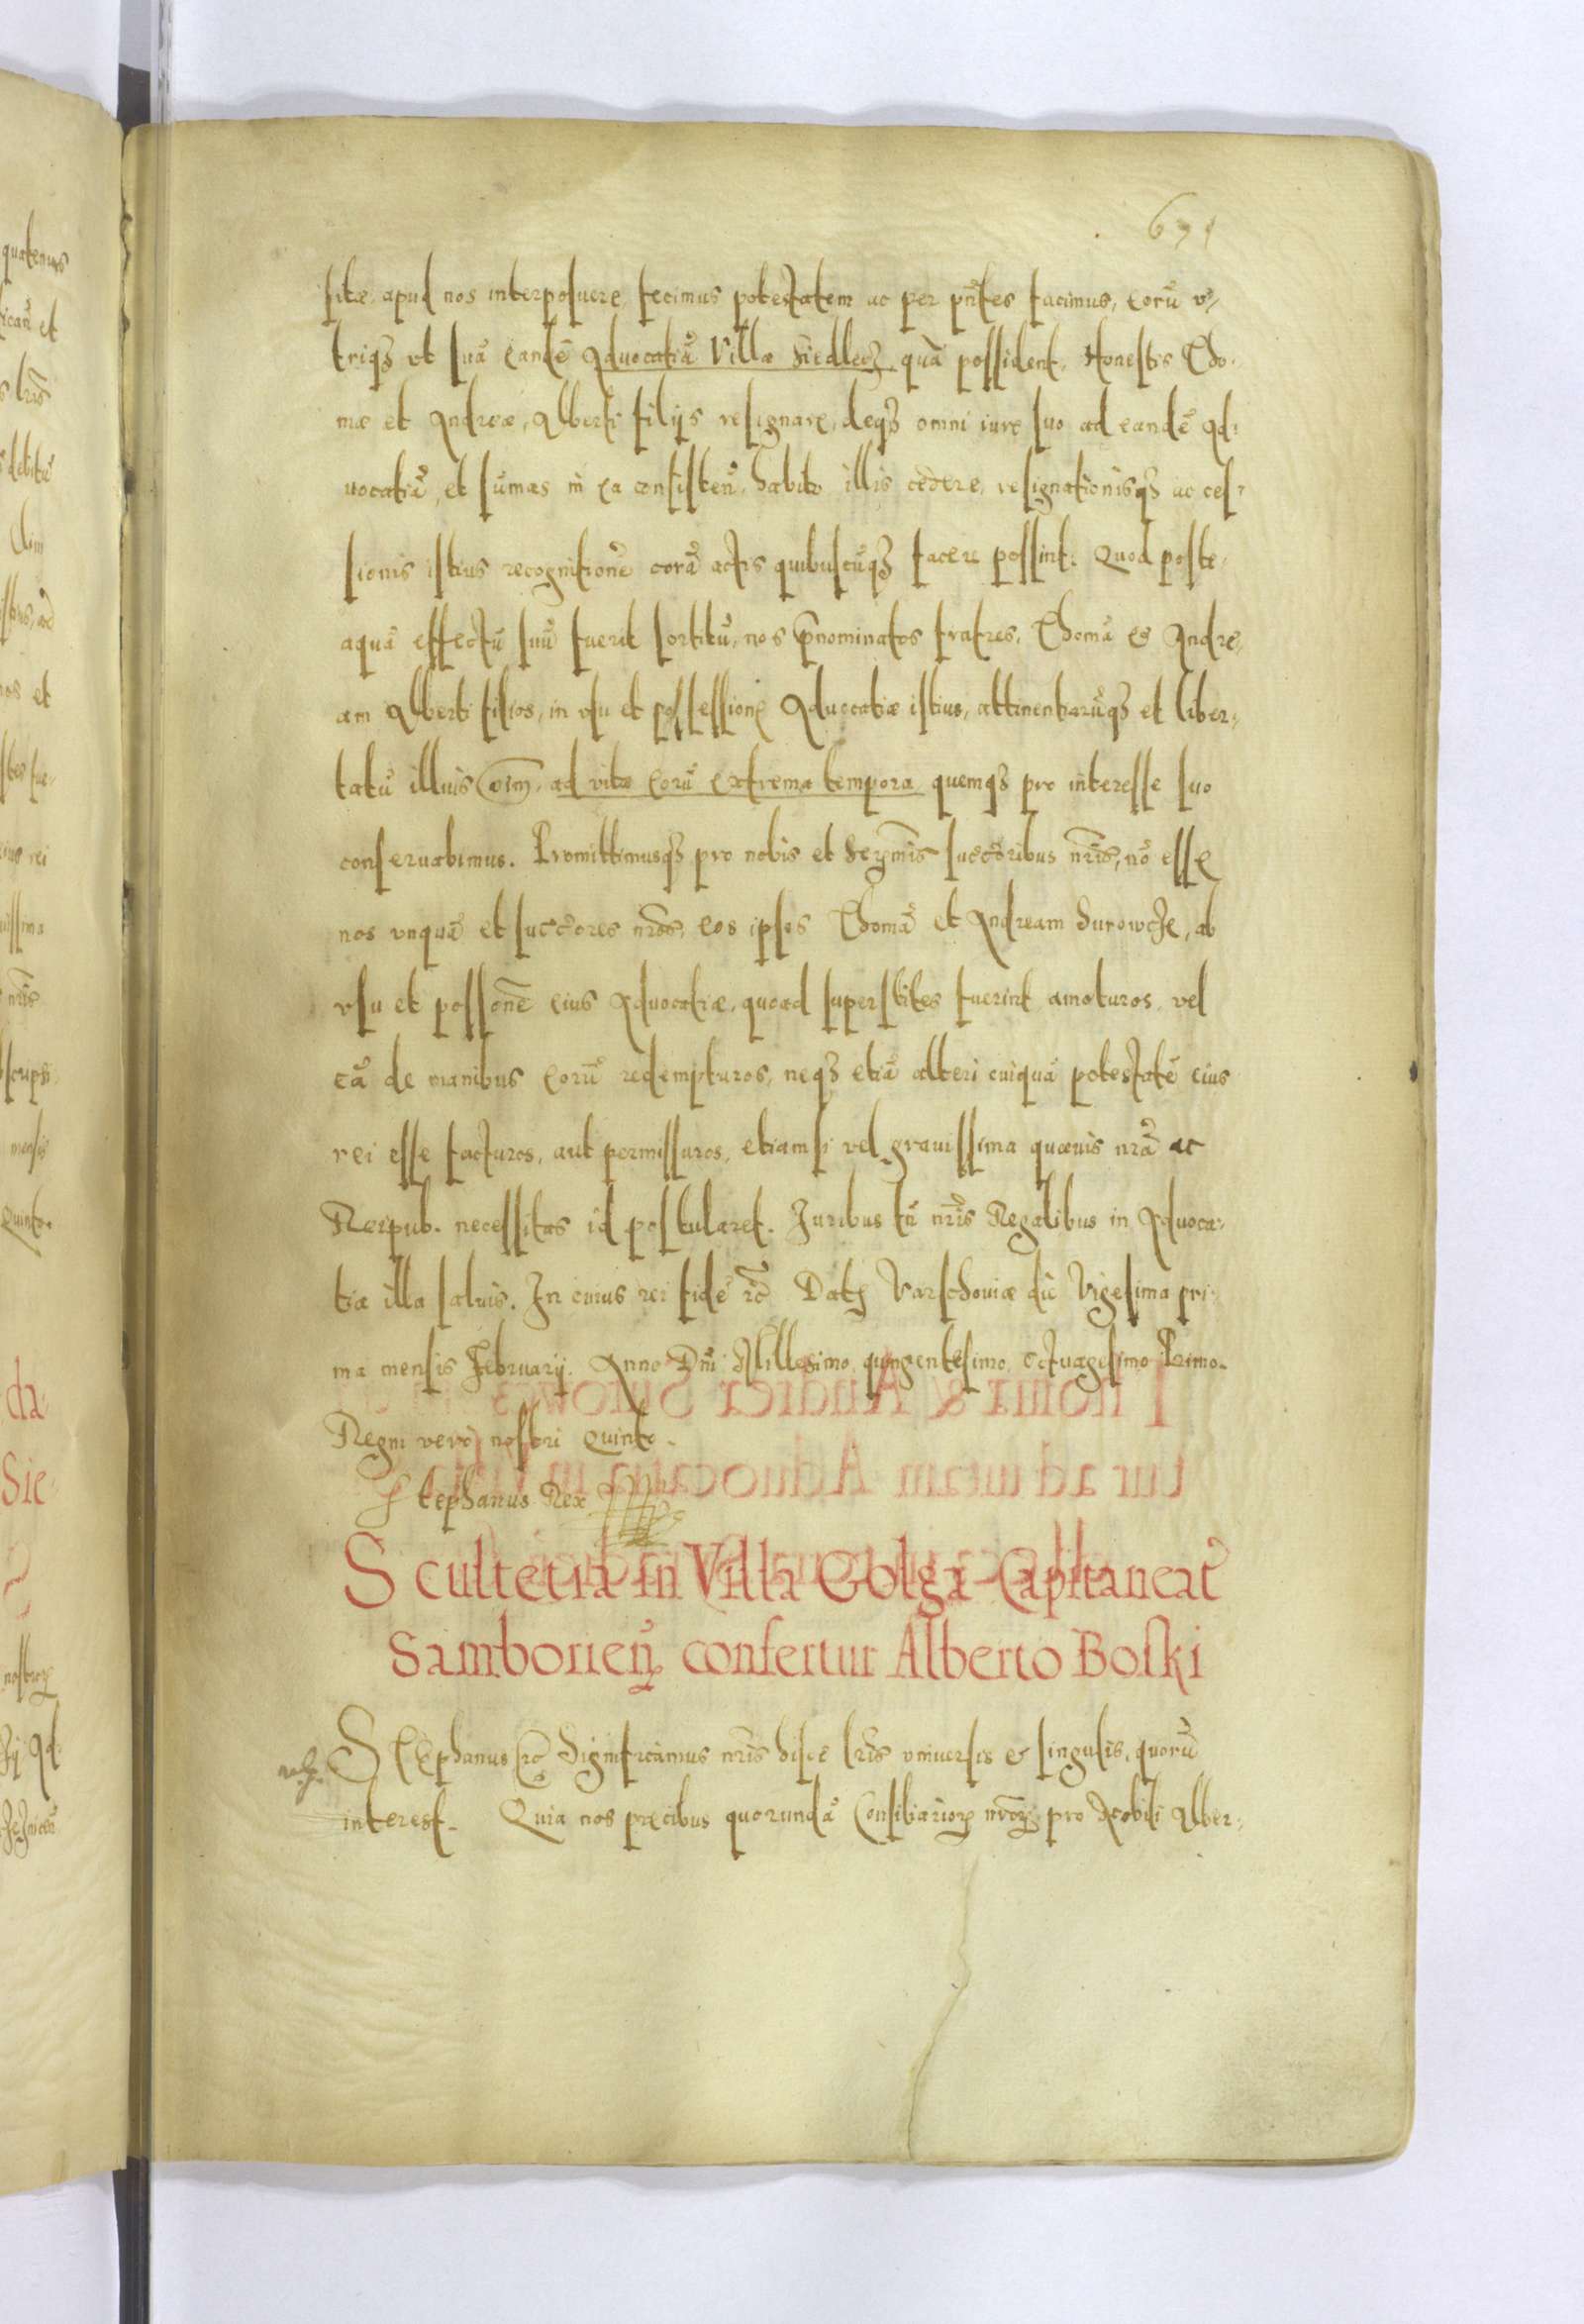 671
sitæ apud nos interposuere, fecimus potestatem ac per pñtes facimus, eorũ v-
triqꝫ vt suã eandẽ Aduocatiã Villæ Siedlecꝫ quã possident, Honestis Tho-
mæ et Andreæ, Alberti filijs resignare, deqꝫ omni iure suo ad eandẽ Ad-
uocatiã, et sũmas in ea consisteñ, habito illis cedere, resignationisqꝫ ac ces-
sionis istius recognitionẽ corã actis quibuscũqꝫ facere possint. Quod poste-
aquã effectũ suũ fuerit sortitũ, nos p̃nominatos fratres, Thomã & Andre-
am Alberti filios, in vsu et possessione Aduocatiæ istius, attinentiarũqꝫ et liber-
tatũ illius oĩm, ad vitæ eorũ extrema tempora quemqꝫ pro interesse suo
conseruabimus. Promittimusqꝫ pro nobis et Serm̃is succ̃oribus nr̃is, nõ esse
nos vnquã et succ̃ores nr̃os, eos ipsos Thomã et Andream Surowcze, ab
vsu et possõne eius Aduocatiæ, quoad superstites fuerint amoturos, vel
eã de manibus eorũ redempturos, neqꝫ etiã alteri cuiquã potestatẽ eius
rei esse facturos, aut permissuros, etiamsi vel grauissima quæuis nr̃a ac
Reipub. necessitas id postularet. Juribus tñ nr̃is Regalibus in Aduoca-
tia illa saluis. In cuius rei fidẽ rc̃ Datꝫ Varschouiæ diẽ Vigesima pri-
ma mensis Februarij. Anno Dñi Millesimo quingentesimo octuagesimo Primo.
Regni vero nostri Quinto.
Stephanus Rex
Scultetia in Villa Golga Capitaneat9
Samborieñ confertur Alberto Boski
STephanus rc̃ Significamus nr̃is hisce lr̃is vniuersis & singulis, quorũ
interest. Quia nos precibus quorundã Consiliarioꝝ nr̃oꝝ pro Nobili Alber-